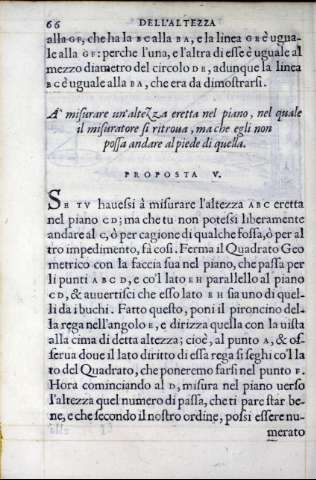 66 DELL'ALTEZZA
alla GF, che ha la BC alla BA, e la linea GE è ugua-
le alla GF: perche l'una, e l'altra di esse è uguale al
mezzo diametro del circolo DE, adunque la linea
BC è uguale alla BA, che era da dimostrarsi.
A' misurare un'altezza eretta nel piano, nel quale
il misuratore si ritroua, ma che egli non
possa andare al piede di quella.
PROPOSTA V.
SE TV hauessi à misurare l'altezza ABC eretta
nel piano CD; ma che tu non potessi liberamente
andare al C, ò per cagione di qualche fossa, ò per al
tro impedimento, fà così. Ferma il Quadrato Geo
metrico con la faccia sua nel piano, che passa per
li punti ABCD, e co'l lato EH parallelo al piano
CD, & auuertisci che esso lato EH sia uno di quel-
li da i buchi. Fatto questo, poni il pironcino del-
la rega nell'angolo E, e dirizza quella con la uista
alla cima di detta altezza; cioè, al punto A, & os-
serua doue il lato diritto di essa rega si seghi co'l la
to del Quadrato, che poneremo farsi nel punto F.
Hora cominciando al D, misura nel piano uerso
l'altezza quel numero di passa, che ti pare star be-
ne, e che secondo il nostro ordine, possi essere nu-
merato